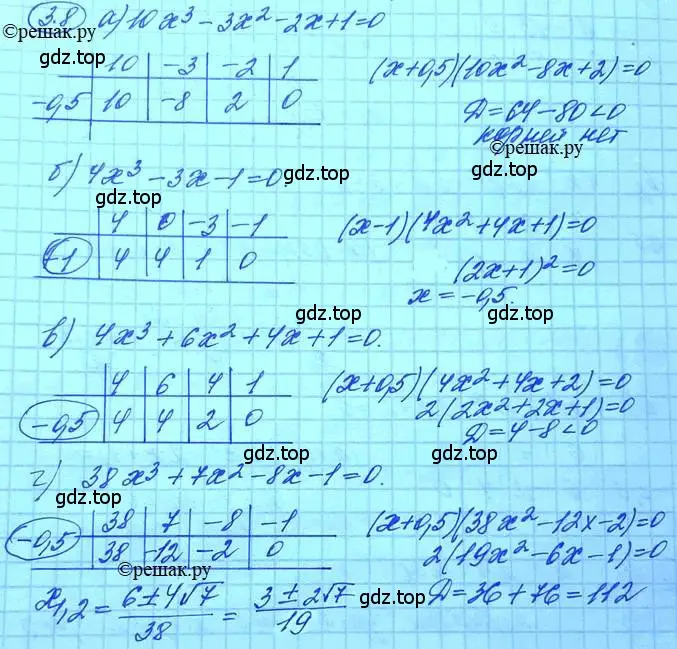 3.8 а) 10x³ - 3x² - 2x + 1 = 0
©reшак.ру
10 | -3 | -2 | 1
-0,5 | 10 | -8 | 2 | 0
(x+0,5)(10x² - 8x + 2) = 0
Д = 64 - 80 < 0
корней нет
©reшак.ру
gdz.top
б) 4x³ - 3x - 1 = 0 gdz.top
gdz.top
4 | 0 | -3 | -1
1 | 4 | 4 | 1 | 0
(x-1)(4x² + 4x + 1) = 0
(2x+1)² = 0
x = -0,5.
gdz.top gdz.top
в) 4x³ + 6x² + 4x + 1 = 0.
4 | 6 | 4 | 1
-0,5 | 4 | 4 | 2 | 0
(x+0,5)(4x² + 4x + 2) = 0
2(2x² + 2x + 1) = 0
Д = 4 - 8 < 0
gdz.top
г) 38x³ + 7x² - 8x - 1 = 0.
gdz.top
38 | 7 | -8 | -1
-0,5 | 38 | -12 | -2 | 0
(x+0,5)(38x² - 12x - 2) = 0
2(19x² - 6x - 1) = 0
©reшак.ру
x₁,₂ = (6 ± 4√7)/38 = (3 ± 2√7)/19 gdz.top Д = 36 + 76 = 112
gdz.top